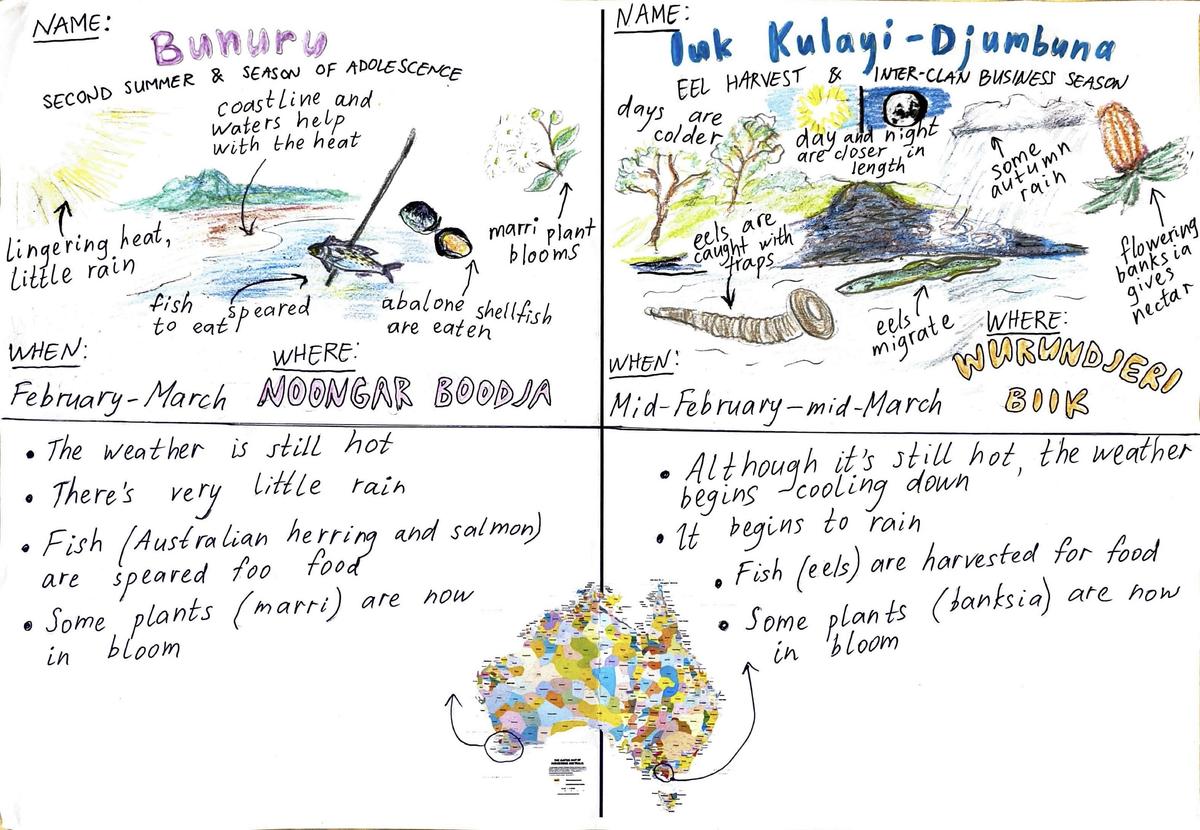 NAME:
Bunuru
SECOND SUMMER & SEASON OF ADOLESCENCE
coastline and
waters help
with the heat
lingering heat,
little rain
marri plant
blooms
fish speared
to eat
abalone shellfish
are eaten
WHEN:
February-March
WHERE:
NOONGAR BOODJA
• The weather is still hot
• There's very little rain
• Fish (Australian herring and salmon)
are speared foo food
• Some plants (marri) are now
in bloom
NAME:
Iuk Kulayi-Djumbuna
EEL HARVEST & INTER-CLAN BUSINESS SEASON
days are
colder
day and night
are closer in
length
some
autumn
rain
eels are
caught with
traps
flowering
banksia
gives
nectar
eels
migrate
WHEN:
Mid-February-mid-March
WHERE:
WURUNDJERI
BIIK
• Although it's still hot, the weather
begins cooling down
• It begins to rain
• Fish (eels) are harvested for food
• Some plants (banksia) are now
in bloom